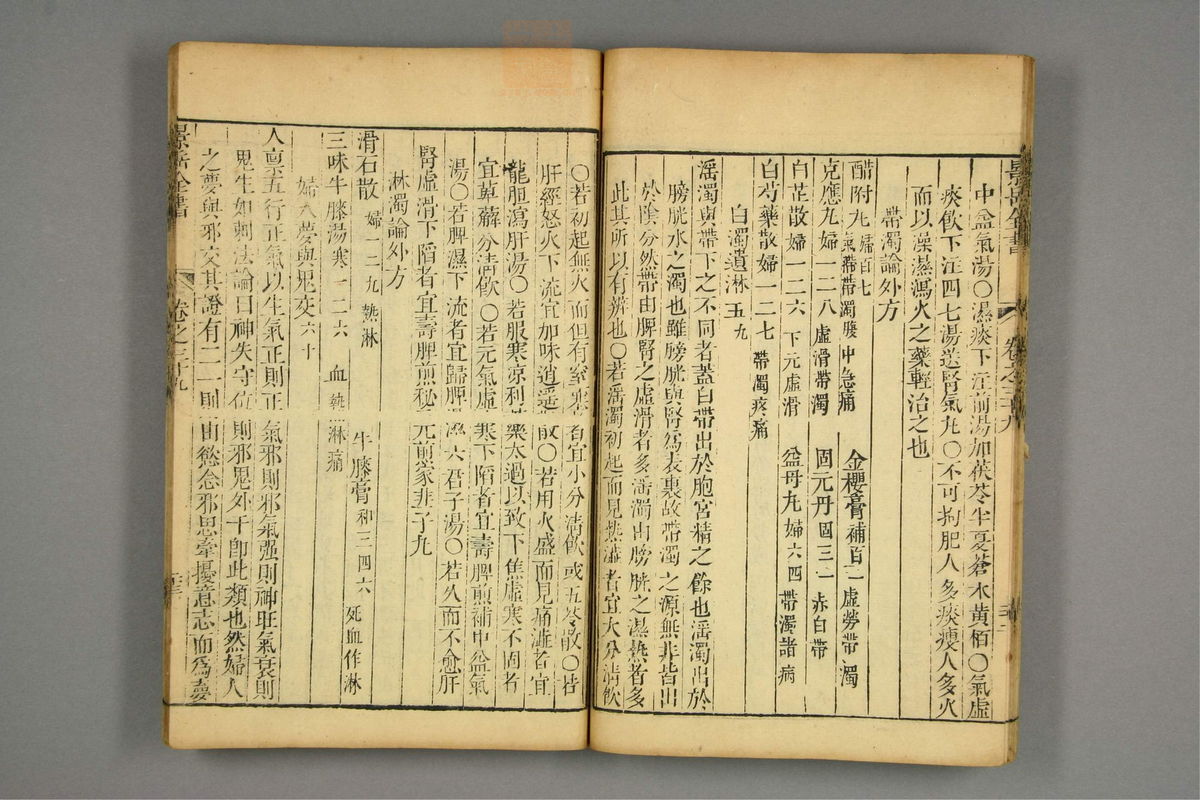 景岳全書
卷之三十九
中益氣湯○濕痰下注前湯加茯苓半夏蒼朮黃栢○氣虛
痰飲下注四七湯送腎氣丸○不可拘肥人多痰瘦人多火
而以燥濕瀉火之藥輕治之也
帶濁論外方
醋附丸婦百七 氣滯帶濁腹中急痛 金櫻膏補百一 虛勞帶濁
克應丸婦一二八 虛滑帶濁 固元丹固三一 赤白帶
白芷散婦一二六 下元虛滑 益母丸婦六四 帶濁諸病
白芍藥散婦一二七 帶濁疼痛
白濁遺淋五九
淫濁與帶下之不同者蓋白帶出於胞宮精之餘也淫濁出於
膀胱水之濁也雖膀胱與腎爲表裏故帶濁之源無非皆出
於陰分然帶由脾腎之虛滑者多淫濁由膀胱之濕熱者多
此其所以有辨也○若淫濁初起而見熱澁者宜大分清飲
○若初起無火而但有窒塞者宜小分清飲或五苓散○若
肝經怒火下流宜加味逍遥散○若用火盛而見痛澁者宜
龍胆瀉肝湯○若服寒凉利藥太過以致下焦虛寒不固者
宜萆薢分清飲○若元氣虛寒下陷者宜壽脾煎補中益氣
湯○若脾濕下流者宜歸脾湯六君子湯○若久而不愈肝
腎虛滑下陷者宜壽脾煎秘元煎家韭子丸
淋濁論外方
滑石散婦一二九 熱淋 牛膝膏和三四六 死血作淋
三味牛膝湯寒一二六 血熱淋痛
婦人夢與鬼交六十
人稟五行正氣以生氣正則正氣邪則邪氣强則神旺氣衰則
鬼生如刺法論曰神失守位則邪鬼外干卽此類也然婦人
之夢與邪交其證有二一則由慾念邪思牽擾意志而爲夢
景岳全書
卷之三十九